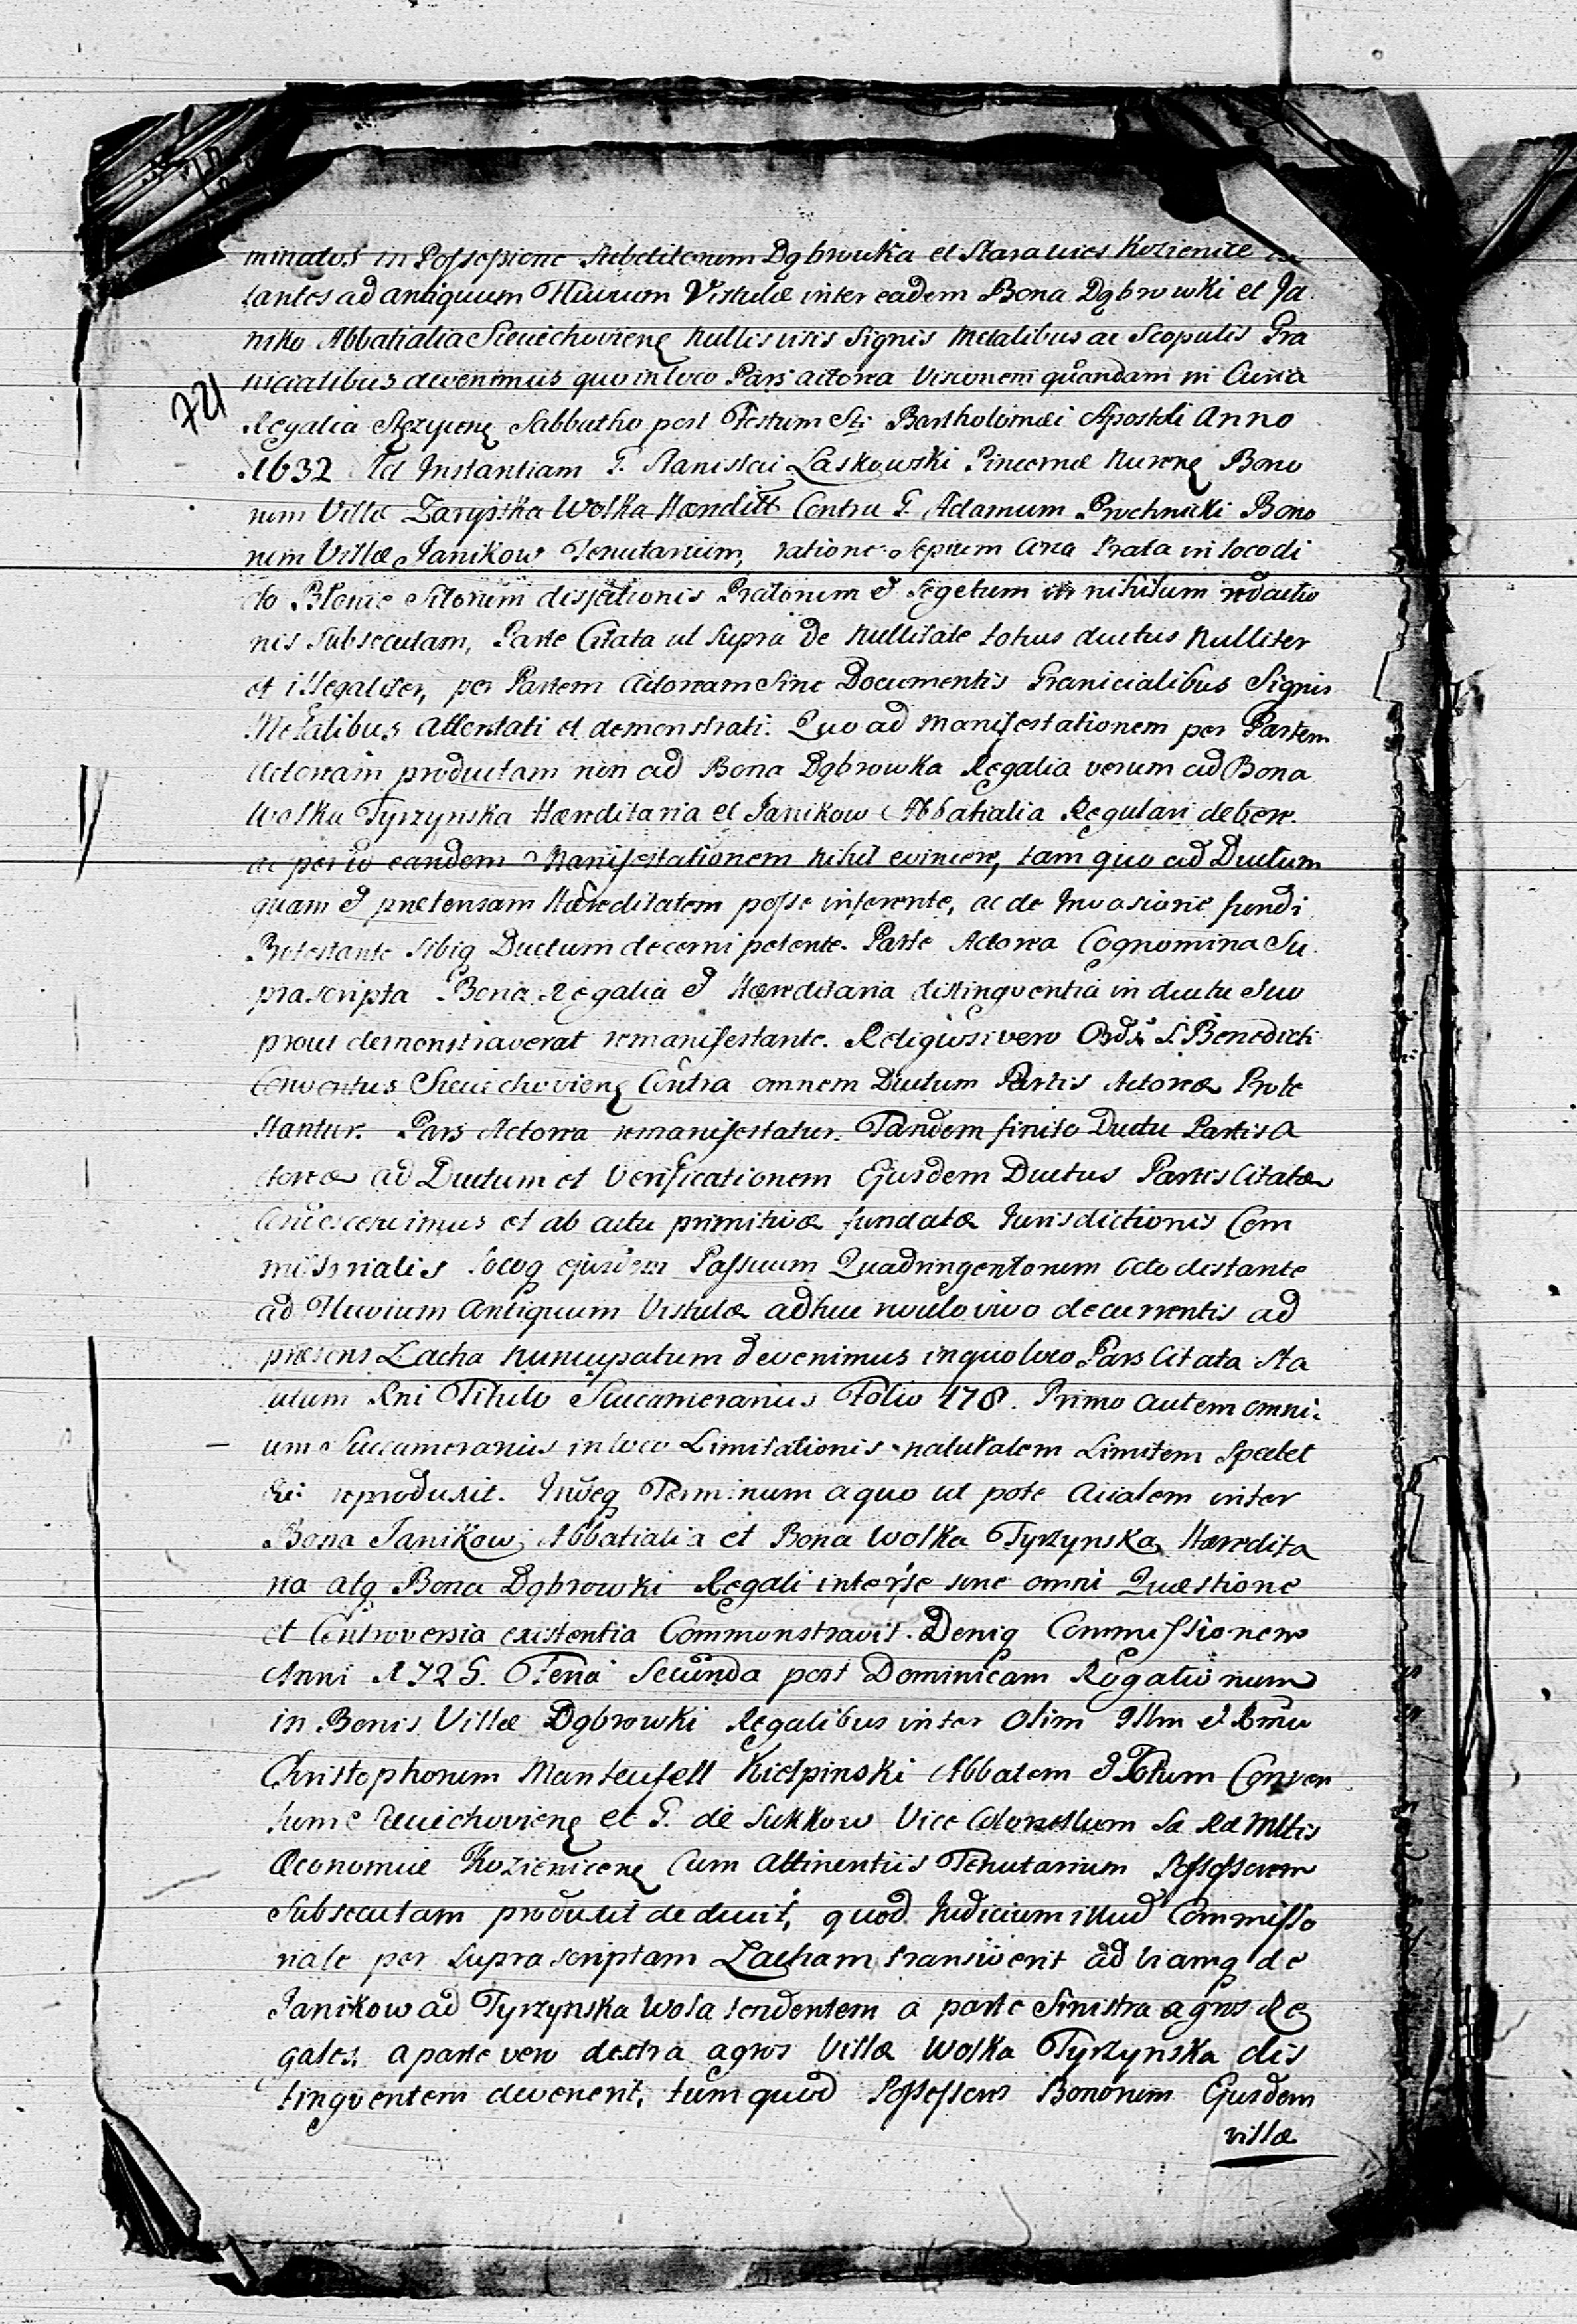 minatos in Possessione Subditorum Dąbrowka et Stara wies Kozienice
tantes ad antiquum Fluvium Vistulæ inter eadem Bona Dąbrowki et Ja
niko Abbatialia Sieciechoviens nullis visis Signis Metalibus ac Scopulis Gra
nicialibus devenimus quo in loco Pars actorea Visionem quandam in Curia
721
Regalia Stęzycens Sabbatho post Festum Sti Bartholomæi Apostoli Anno
1632 Ad Instantiam G. Stanislai Laskowski Pincernæ Nurens Bono
rum Villæ Wolka Hæreditt Contra G. Adamum Prochnicki Bono
rum Villæ Janikow Tenutarium, ratione Sepium circa Prata in loco di
cto Blonie Sitorum disjectionis Pratorum et Segetum in nihilum redactio
nis Subsecutam, Parte Citata ut Supra de nullitate totius ductus nulliter
et illegaliter, per Partem Actoream Sine Documentis Granicialibus Signis
Metalibus Attentati et demonstrati. Quo ad Manifestationem per Partem
Actoream productam non ad Bona Dąbrowka Regalia verum ad Bona
Wolka Tyrzynska Hæreditaria et Janikow Abbatialia Regulari debere.
ac per id eandem Manifestationem nihil evincere, tam quo ad Ductum
quam et prætensam Hæreditatem posse inferente, ac de Invasione fundi
Protestante Sibiq Ductum decerni petente. Parte Actorea Cognomina Su
prascripta Bona Regalia et Hæreditaria distinguentia in ductu Suo
prout demonstraverat remanifestante. Religiosi vero Ordis S. Benedicti
Conventus Sieciechoviens Contra omnem Ductum Partis Actoreæ Prote
stantur. Pars Actorea remanifestatur. Tandem finito Ductu Partis A
ctoreæ ad Ductum et Verificationem Ejusdem Ductus Partis Citatæ
Condescendimus et ab actu primitivæ fundatæ Jurisdictionis Com
missorialis locoq ejusdem Passuum Quadringentorum Octo distante
ad Fluvium Antiquum Vistulæ adhuc rivulo vivo decurrentis ad
præsens Lacha nuncupatum devenimus in quo loco Pars Citata Sta
tutum Rni Titulo Succamerarius Folio 178. Primo autem omni
um Succamerarius in loco Limitationis naturalem Limitem Spectet
reproduxit. Indeq Terminum a quo ut pote Acialem inter
Bona Janikow Abbatialia et Bona Wolka Tyrzynska Hæredita
ria atq Bona Dąbrowki Regali inter se sine omni Quæstione
et Controversia existentia Commonstravit. Deniq Commissionem
Anni 1725. Feria Secunda post Dominicam Rogationum
in Bonis Villæ Dąbrowki Regalibus inter olim Illm et Rmu
Christophorum Manteufell Kiełpinski Abbatem et Totum Conven
tum Sieciechoviens et G. de Sukkow Vice Colonellum Sa Ra Mttis
Œconomiæ Kozienicens Cum Attinentiis Tenutarium Possessorem
Subsecutam produxit deduxit, quod Judicium illud Commisso
riale per Supra Scriptam Lacham transiverit ad viamq de
Janikow ad Tyrzynska Wola tendentem a parte Sinistra agros Re
gales a parte vero dextra agros Villæ Wolka Tyrzynska dis
tinguentem devenerit, tum quod Possessor Bonorum Ejusdem
villæ